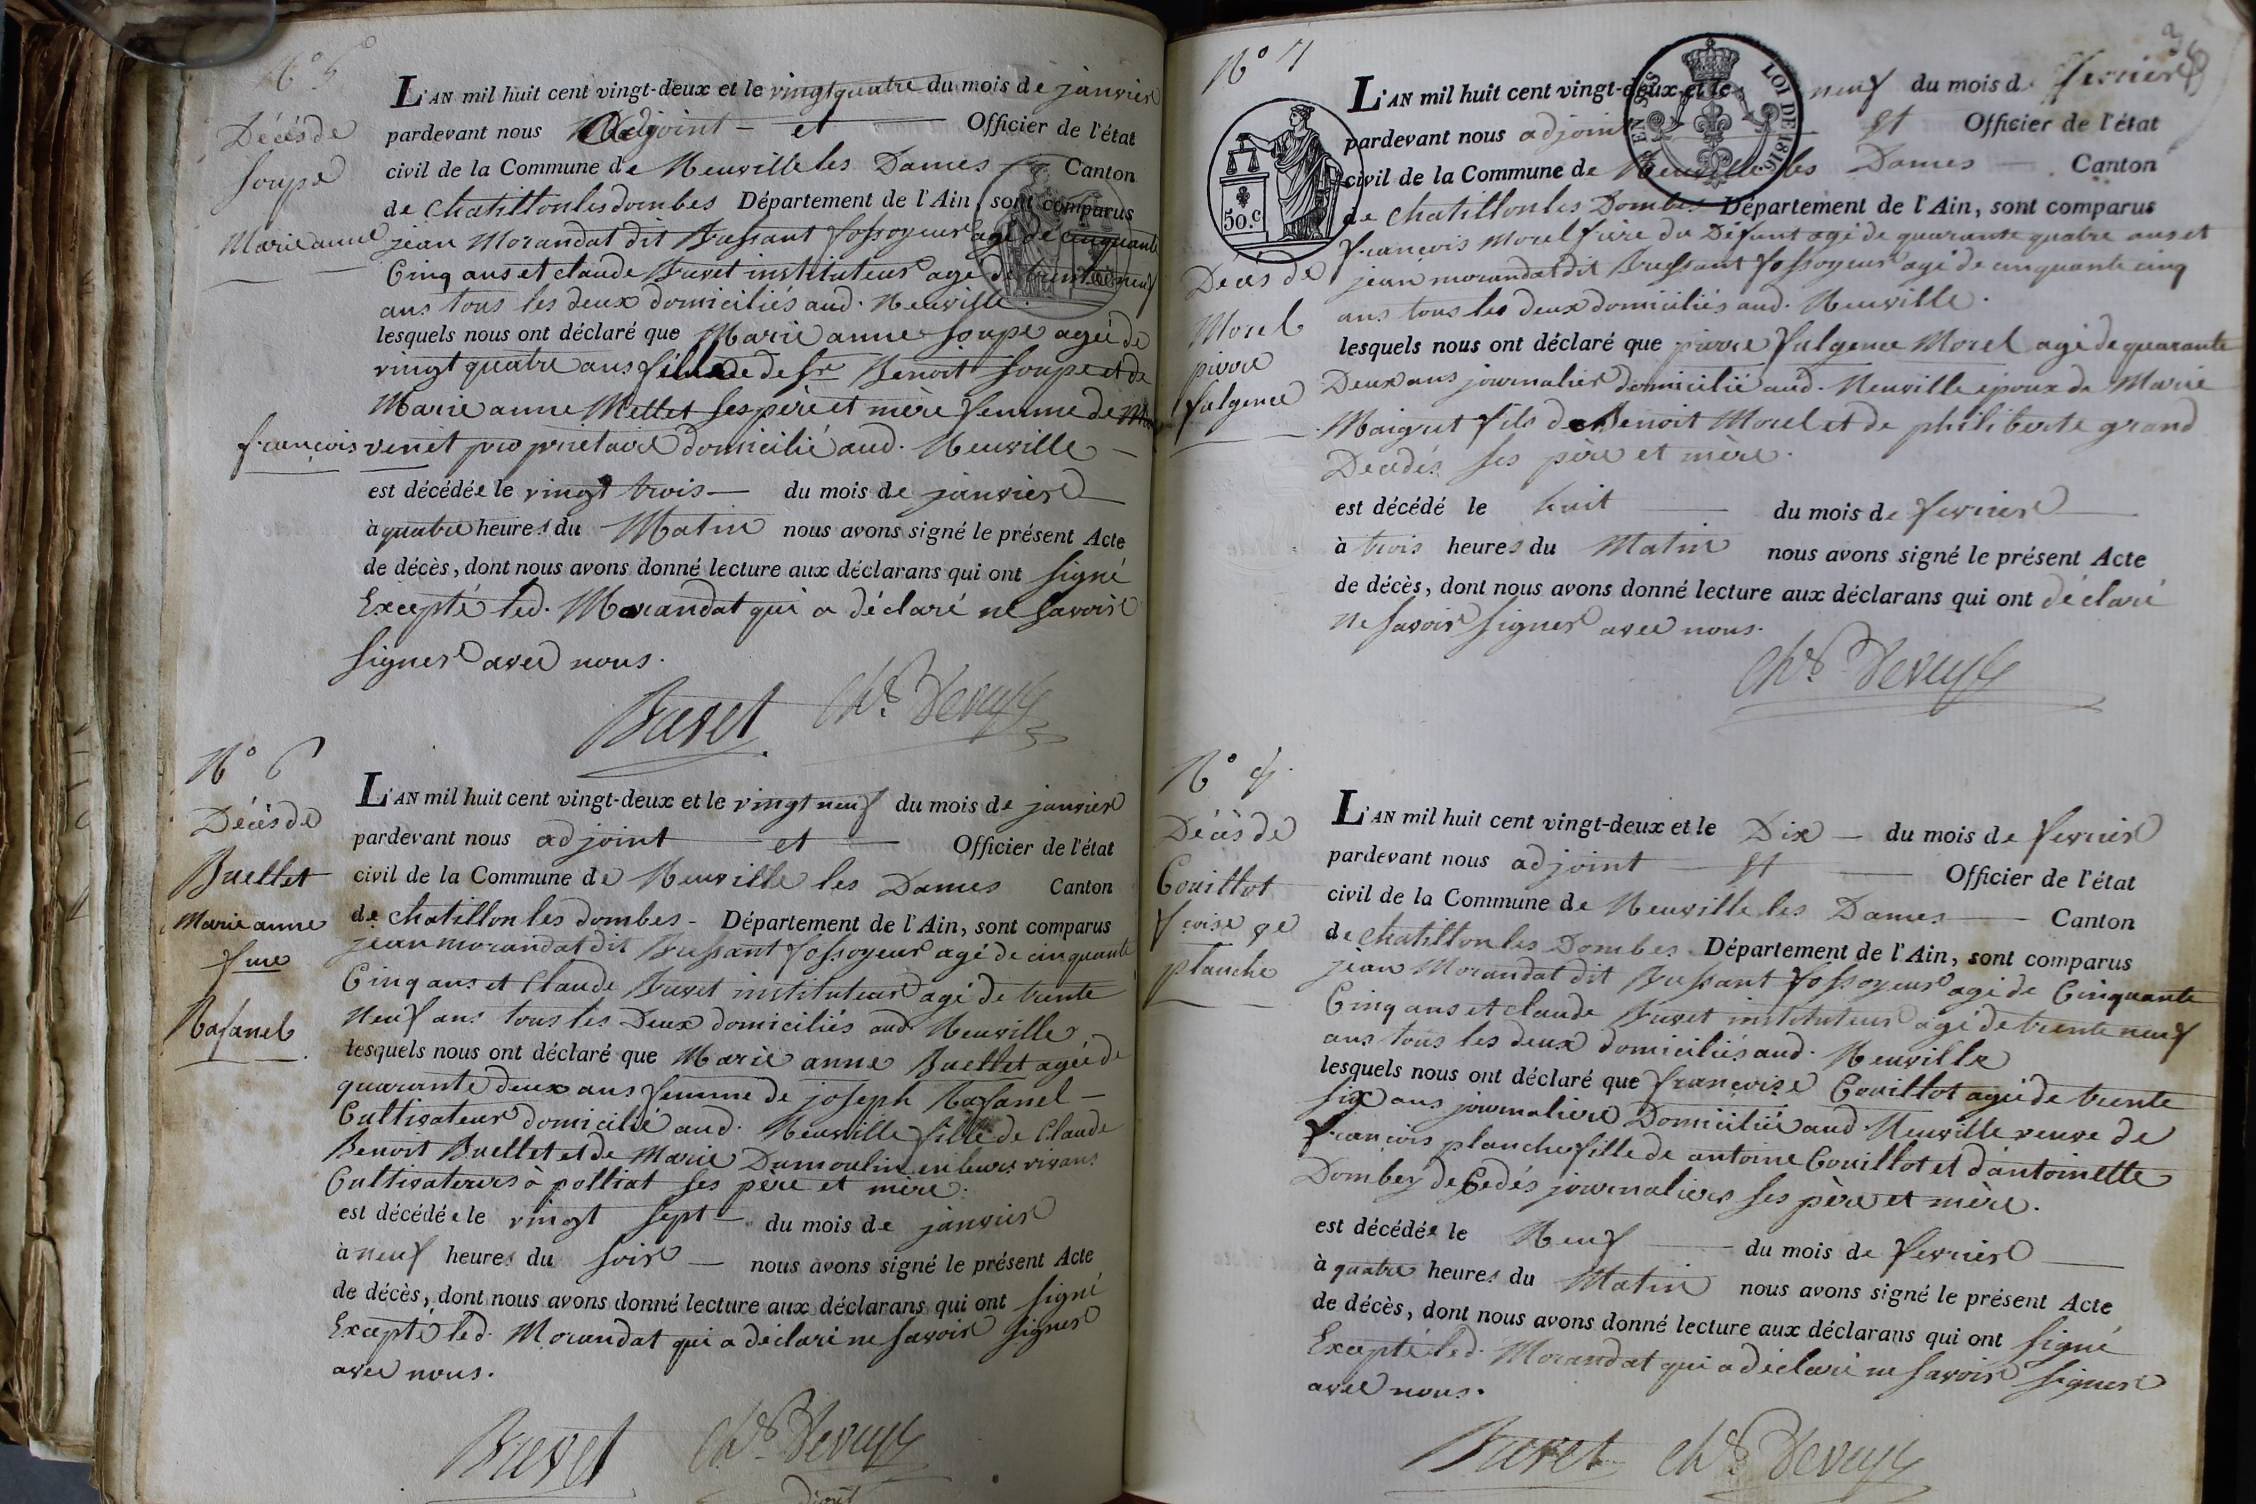 N° 5
Décès de
Soupe
Marie anne
L'AN mil huit cent vingt-deux et le vingt quatre du mois de janvier
pardevant nous adjoint et Officier de l'état
civil de la Commune de Neuville les Dames Canton
de Chatillon les dombes Département de l'Ain, sont comparus
jean Morandat dit Bressant fossoyeur agé de cinquante
Cinq ans et claude Buret instituteur agé de trente neuf
ans tous les deux domiciliés aud. Neuville.
lesquels nous ont déclaré que Marie anne Soupe agée de
vingt quatre ans fille de Sr Benoit Soupe et de
Marie anne Mellet ses père et mère femme de
françois venet proprietaire domicilié aud. Neuville
est décédée le vingt trois du mois de janvier
à quatre heures du Matin nous avons signé le présent Acte
de décès, dont nous avons donné lecture aux déclarans qui ont signé
Excepté led. Morandat qui a déclaré ne savoir
signer avec nous.
Buret
N° 6
Décès de
Buellet
Marie anne
fme
Rafanel
L'AN mil huit cent vingt-deux et le vingt neuf du mois de janvier
pardevant nous adjoint et Officier de l'état
civil de la Commune de Neuville les Dames Canton
de Chatillon les dombes - Département de l'Ain, sont comparus
jean morandat dit Bressant fossoyeur agé de cinquante
Cinq ans et Claude Buret instituteur agé de trente
Neuf ans tous les Deux domiciliés aud Neuville
lesquels nous ont déclaré que Marie anne Buellet agée de
quarante deux ans femme de joseph Rafanel -
Cultivateur domicilié aud. Neuville fille de Claude
Benoit Buellet et de Marie Dumoulin en leurs vivans
Cultivateurs à polliat ses père et mère.
est décédée le vingt sept du mois de janvier
à neuf heures du soir nous avons signé le présent Acte
de décès, dont nous avons donné lecture aux déclarans qui ont signé
Excepté led. Morandat qui a déclaré ne savoir signer
avec nous.
Buret
N° 7
50.c
EN SUS LOI DE 1816.
Décès de
Morel
pierre
fulgence
L'AN mil huit cent vingt-deux et le neuf du mois de fevrier
pardevant nous adjoint et Officier de l'état
civil de la Commune de Neuville les Dames Canton
de Chatillon les Dombes Département de l'Ain, sont comparus
françois Morel frère du Défunt agé de quarante quatre ans et
jean morandat dit Bressant fossoyeur agé de cinquante cinq
ans tous les deux domiciliés aud. Neuville.
lesquels nous ont déclaré que pierre fulgence Morel agé de quarante
Deux ans journalier domicilié aud. Neuville époux de Marie
Maigret fils de Benoit Morel et de philiberte grand
Decedés ses père et mère.
est décédé le huit du mois de fevrier
à trois heures du Matin nous avons signé le présent Acte
de décès, dont nous avons donné lecture aux déclarans qui ont déclaré
ne savoir signer avec nous.
Décès de
Couillot
fçoise
planche
L'AN mil huit cent vingt-deux et le Dix du mois de fevrier
pardevant nous adjoint et Officier de l'état
civil de la Commune de Neuville les Dames Canton
de Chatillon les Dombes Département de l'Ain, sont comparus
jean Morandat dit Bressant fossoyeur agé de Cinquante
Cinq ans et claude Buret instituteur agé de trente neuf
ans tous les deux domiciliés aud. Neuville
lesquels nous ont déclaré que françoise Couillot agée de trente
six ans journaliere Domiciliée aud Neuville veuve de
françois planche fille de antoine Couillot et d'antoinette
Dombey deCedés journaliers ses père et mère.
est décédée le Neuf du mois de fevrier
à quatre heures du Matin nous avons signé le présent Acte
de décès, dont nous avons donné lecture aux déclarans qui ont signé
Excepté led. Morandat qui a déclaré ne savoir signer
avec nous.
Buret